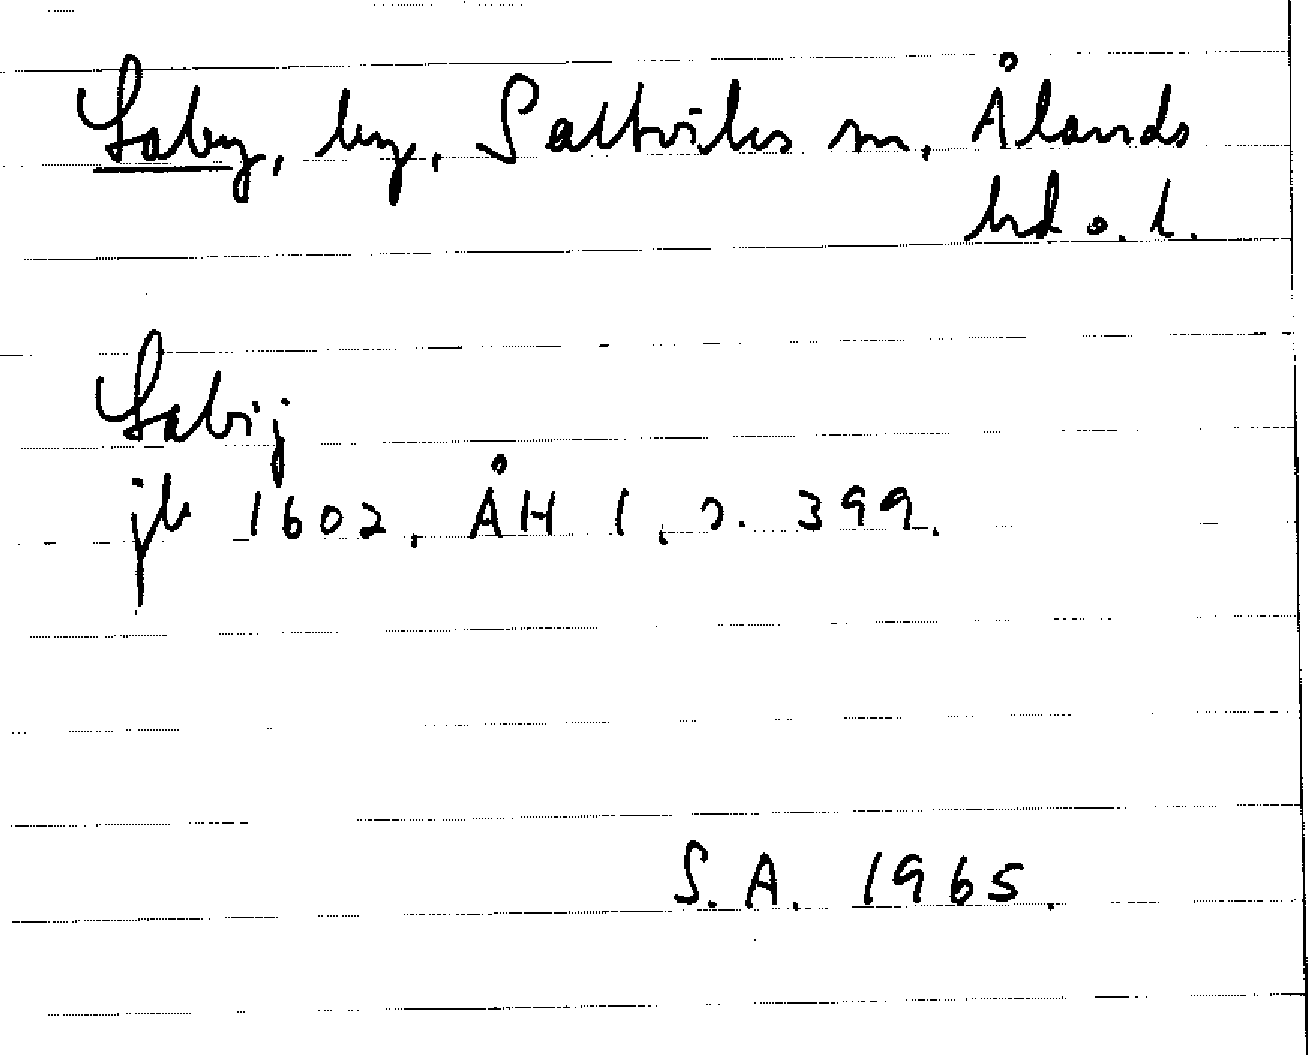 Laby, by, Saltviks sn, Ålands
hd o. l.
Labij
jb 1602, ÅH 1, s. 399.
S.A. 1965.